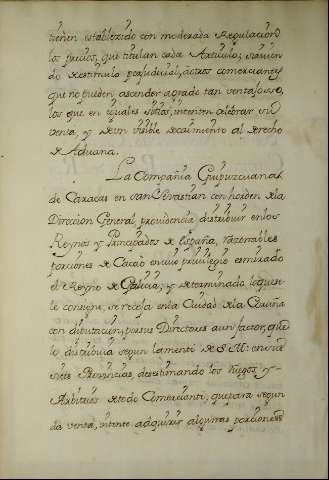 tienen establecido con moderada Regulacion
los precios, que titulan cada Articulo; sirvien
do de estimulo perjudicial, à otros comerciantes
que no pueden ascender a grado tan ventajoso,
los que en iguales sitios, intenten celebrar su
venta, y de un visible decaimiento al derecho
de Aduana.
La Compañia Guipuzcuana
de Caracas en San Sevastian con horden de la
Direccion General, providencia distribuir en los
Reynos y Principados de España, razonables
porciones de Cacao en cuio privilegio es mirado
el Reyno de Galicia; y determinado lo que se
le consigne, se receja en la Ciudad de la Coruña
con diputacion, por sus Directores a un factor, que
lo distribuia segun la mente de S. M: en sus
siete Provincias, desestimando los Ruegos y
Arbitrios de todo Comerciante, que para segun
da venta, intente adquirir algunas porciones